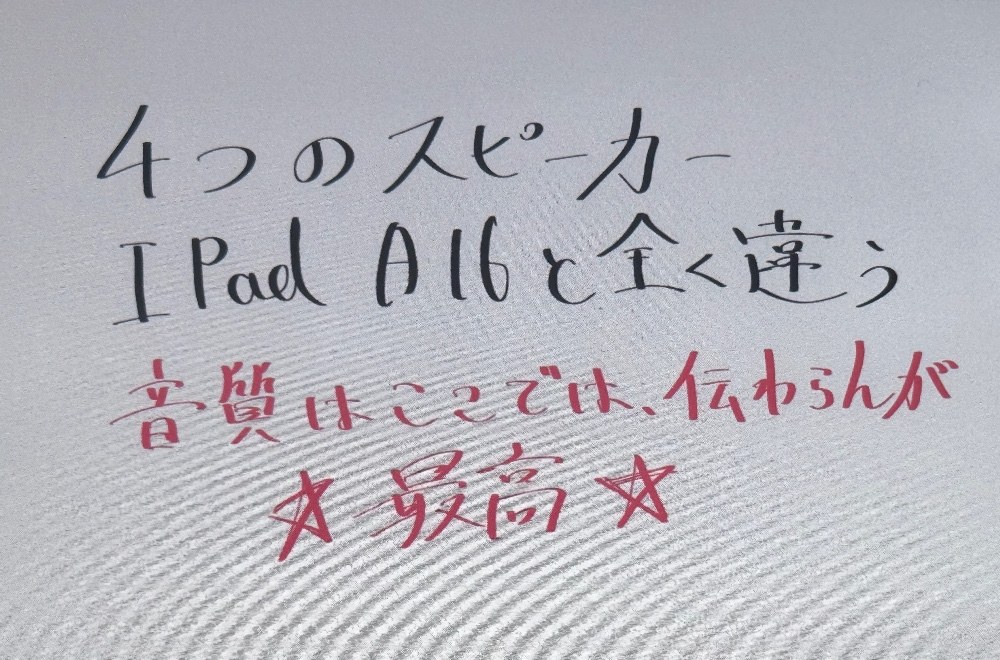 4つのスピーカー
IPad A16と全く違う
音質はここでは、伝わらんが
☆最高☆